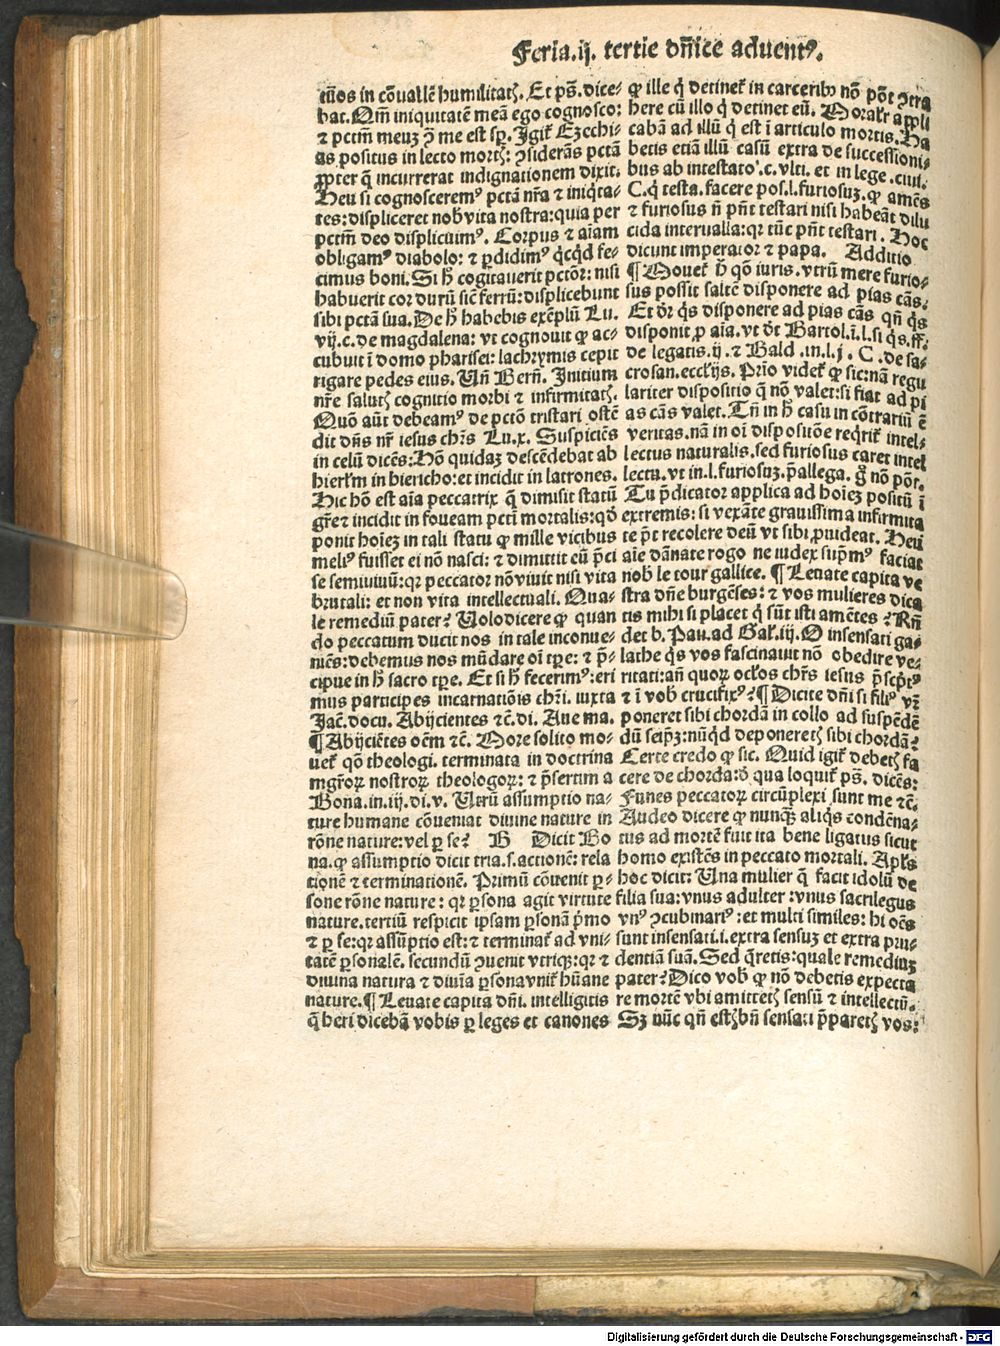 Feria.ij. tertie dñice aduentꝰ.
tuos in cōuallē humilitatꝭ. Et pš. dice⸗
bat. Qm̄ iniquitatē meā ego cognosco:
⁊ pctm̄ meuꝫ ꝯ me est sp̄. Igit̄ Ezechi⸗
as positus in lecto mortꝭ: ꝯsiderās pctā
ꝓpter q̄ incurrerat indignationem dixit.
Heu si cognosceremꝰ pctā nr̄a ⁊ iniq̄ta⸗
tes: displiceret nob̄ vita nostra: quia per
pctm̄ deo displicuimꝰ. Corpus ⁊ aīam
obligamꝰ diabolo: ⁊ ꝑdidimꝰ q̇cq̇d fe⸗
cimus boni. Si h̄ cogitauerit pctōr: nisi
habuerit cor durū sic̄ ferrū: displicebunt
sibi pctā sua. De h̄ habebis exēplū Lu.
vij. c. de magdalena: vt cognouit ꝙ ac⸗
cubuit ī domo pharisei: lachrymis cepit
rigare pedes eius. Vn̄ Bern̄. Initium
nr̄e salutꝭ cognitio morbi ⁊ infirmitatꝭ.
Quō aūt debeamꝰ de pctō tristari ostē
dit dn̄s nr̄ iesus chr̄s Lu. x. Suspiciēs
in celū dicēs: Hō quidaꝫ descēdebat ab
hierl̄m in hiericho: et incidit in latrones.
Hic hō est aīa peccatrix q̄ dimisit statū
gr̄e ⁊ incidit in foueam pcti mortalis: qđ
ponit hoīeꝫ in tali statu ꝙ mille vicibus
meliꝰ fuisset ei nō nasci: ⁊ dimittit eū p̄ci
se semiuiuū: qꝛ peccator nō viuit nisi vita
brutali: et non vita intellectuali. Qua⸗
le remediū pater? Volo dicere ꝙ quan
do peccatum ducit nos in tale inconue⸗
niēs: debemus nos mūdare oī tꝑe: ⁊ p̄⸗
cipue in h̄ sacro tꝑe. Et si h̄ fecerimꝰ: eri
mus participes incarnatiōis chr̄i. iuxta
Jac̄. docu. Abijcientes ⁊c̄. di. Aue ma.
¶ Abijciētes oēm ⁊c̄. More solito mo⸗
uet̄ qō theologi. terminata in doctrina
mgr̄oꝝ nostroꝝ theologoꝝ: ⁊ p̄sertim a
Bona. in. iij. di. v. Vtrū assumptio na⸗
ture humane cōueniat diuine nature in
rōne nature: vel ꝑ se? B Dicit Bo
na. ꝙ assumptio dicit tria. s. actionē: rela
tionē ⁊ terminationē. Primū cōuenit ꝑ⸗
sone rōne nature: qꝛ ꝑsona agit virtute
nature. tertiū respicit ipsam ꝑsonā p̄mo
⁊ ꝑ se: qꝛ assūptio est: ⁊ terminat̄ ad vni⸗
tatē ꝑsonalē. secundū ꝯuenit vtriqꝫ: qꝛ ⁊
diuina natura ⁊ diuīa ꝑsona vnit̄ hūane
nature. ¶ Leuate capita dn̄i. intelligitis
q̄ heri dicebā vobis ꝑ leges et canones
ꝙ ille q̇ detinet̄ in carceribꝰ nō pōt ꝯtra
here cū illo q̇ detinet eū. Moralr̄ appli
cabā ad illū q̇ est ī articulo mortis. Ha
betis etiā illū casū extra de successioni⸗
bus ab intestato. c. vlti. et in lege. ciui.
C. q̇ testa. facere pos. l. furiosuꝫ. ꝙ amēs
⁊ furiosus n̄ pn̄t testari nisi habeāt dilu
cida interualla: qꝛ tūc pn̄t testari. Hoc
dicunt imperator ⁊ papa. Additio
¶ Mouet̄ h̄ qō iuris. vtrū mere furio⸗
sus possit saltē disponere ad pias cās.
Et dr̄ q̇s disponere ad pias cās qn̄ q̇s
disponit ꝓ aīa. vt dt̄ Bartol. ī. l. si q̇s. ff.
de legatis. ij. ⁊ Bald. in. l. j. C. de sa⸗
crosan. eccl̄ijs. Prīo videt̄ ꝙ sic: nā regu
lariter dispositio q̄ nō valet: si fiat ad pi
as cās valet. Tn̄ in h̄ casu in cōtrariū ē
veritas. nā in oī dispositōe req̇rit̄ intel⸗
lectus naturalis. sed furiosus caret intel
lectu. vt in. l. furiosuꝫ. p̄allega. g̊ nō pōt.
Tu p̄dicator applica ad hoīeꝫ positū ī
extremis: si vexāte grauissima infirmita
te pn̄t recolere deū vt sibi ꝓuideat. Heu
aīe dānate rogo ne iudex sup̄mꝰ faciat
nob̄ le tour gallice. ¶ Leuate capita ve
stra dn̄e burgēses: ⁊ vos mulieres dica
tis mihi si placet q̇ sūt isti amētes? Rn̄
det b. Pau. ad Gal̄. iij. O insensati ga⸗
lathe q̇s vos fascinauit nō obedire ve⸗
ritati: an̄ quoꝝ ocl̓os chr̄s iesus p̄scptꝰ
⁊ ī vob̄ crucifixꝰ? ¶ Dicite dn̄i si filiꝰ vr̄
poneret sibi chordā in collo ad suspēdē
dū seipꝫ: nūq̇d deponeretꝭ sibi chordā?
Certe credo ꝙ sic. Quid igit̄ debetꝭ fa
cere de chorda: đ qua loquit̄ pš. dicēs:
Funes peccatoꝝ circūplexi sunt me ⁊c̄.
Audeo dicere ꝙ nunqꝫ aliq̇s condēna⸗
tus ad mortē fuit ita bene ligatus sicut
homo existēs in peccato mortali. Apl̓s
hoc dicit: Vna mulier q̄ facit idolū de
filia sua: vnus adulter: vnus sacrilegus
vnꝰ ꝯcubinariꝰ: et multi similes: hi oēs
sunt insensati. i. extra sensuꝫ et extra pru⸗
dentiā suā. Sed q̄retis: quale remediuꝫ
pater? Dico vob̄ ꝙ nō debetis expecta
re mortē vbi amittetꝭ sensū ⁊ intellectū.
Sꝫ nūc qn̄ estꝭ bn̄ sensati p̄paretꝭ vos:
Digitalisierung gefördert durch die Deutsche Forschungsgemeinschaft - DFG